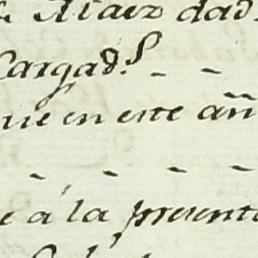 Maiz dad
Cargad.s
que en este añ
e á la present